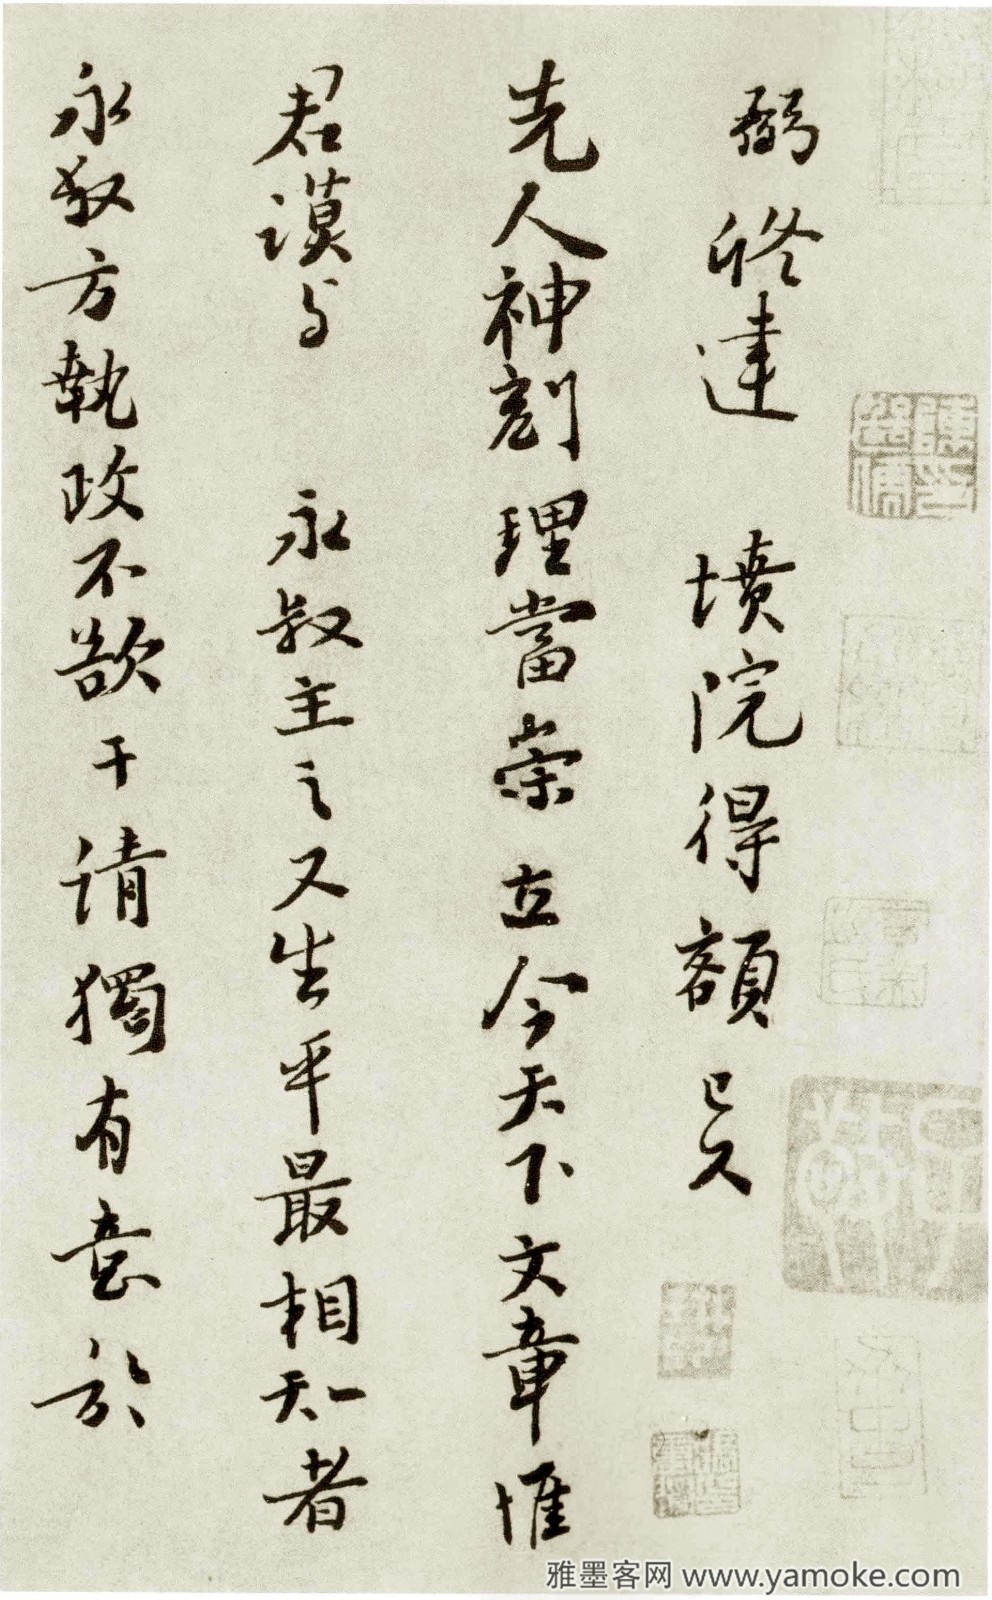 弼修建 墳院得額已久
先人神刻理當崇立今天下文章惟
君謨与 永叔主之又生平最相知者
永叔方執政不欲干請獨有意於
雅墨客网 www.yamoke.com